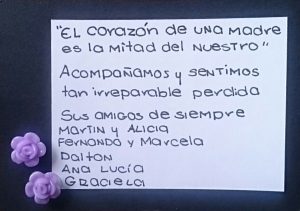 "El corazón de una madre
es la mitad del nuestro"
Acompañamos y sentimos
tan irreparable perdida
Sus amigos de siempre
Martin y Alicia
Fernando y Marcela
Dalton
Ana Lucía
Graciela